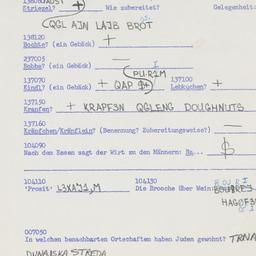 Striezel? Wie zubereitet? Gelegenheit:
QGL AJN LAJB BROT
138120
Bochte? (ein Gebäck) +
237005
Bobbe? (ein Gebäck) —
(PURIM)
137070 137100
Kindl? (ein Gebäck) + QAP Lebkuchen? +
137150
Krapfen? + KRAPF3N QGLENG DOUGHNUTS
137160
Kräpfchen/Kräpflein? (Benennung? Zubereitungsweise?) —
104090
Nach dem Essen sagt der Wirt zu den Männern:
104110 104130
'Prosit' Die Brooche über Wein:
HAGOF3N
007050
In welchen benachbarten Ortschaften haben Juden gewohnt? TRNA
DUNAJSKA STREDA